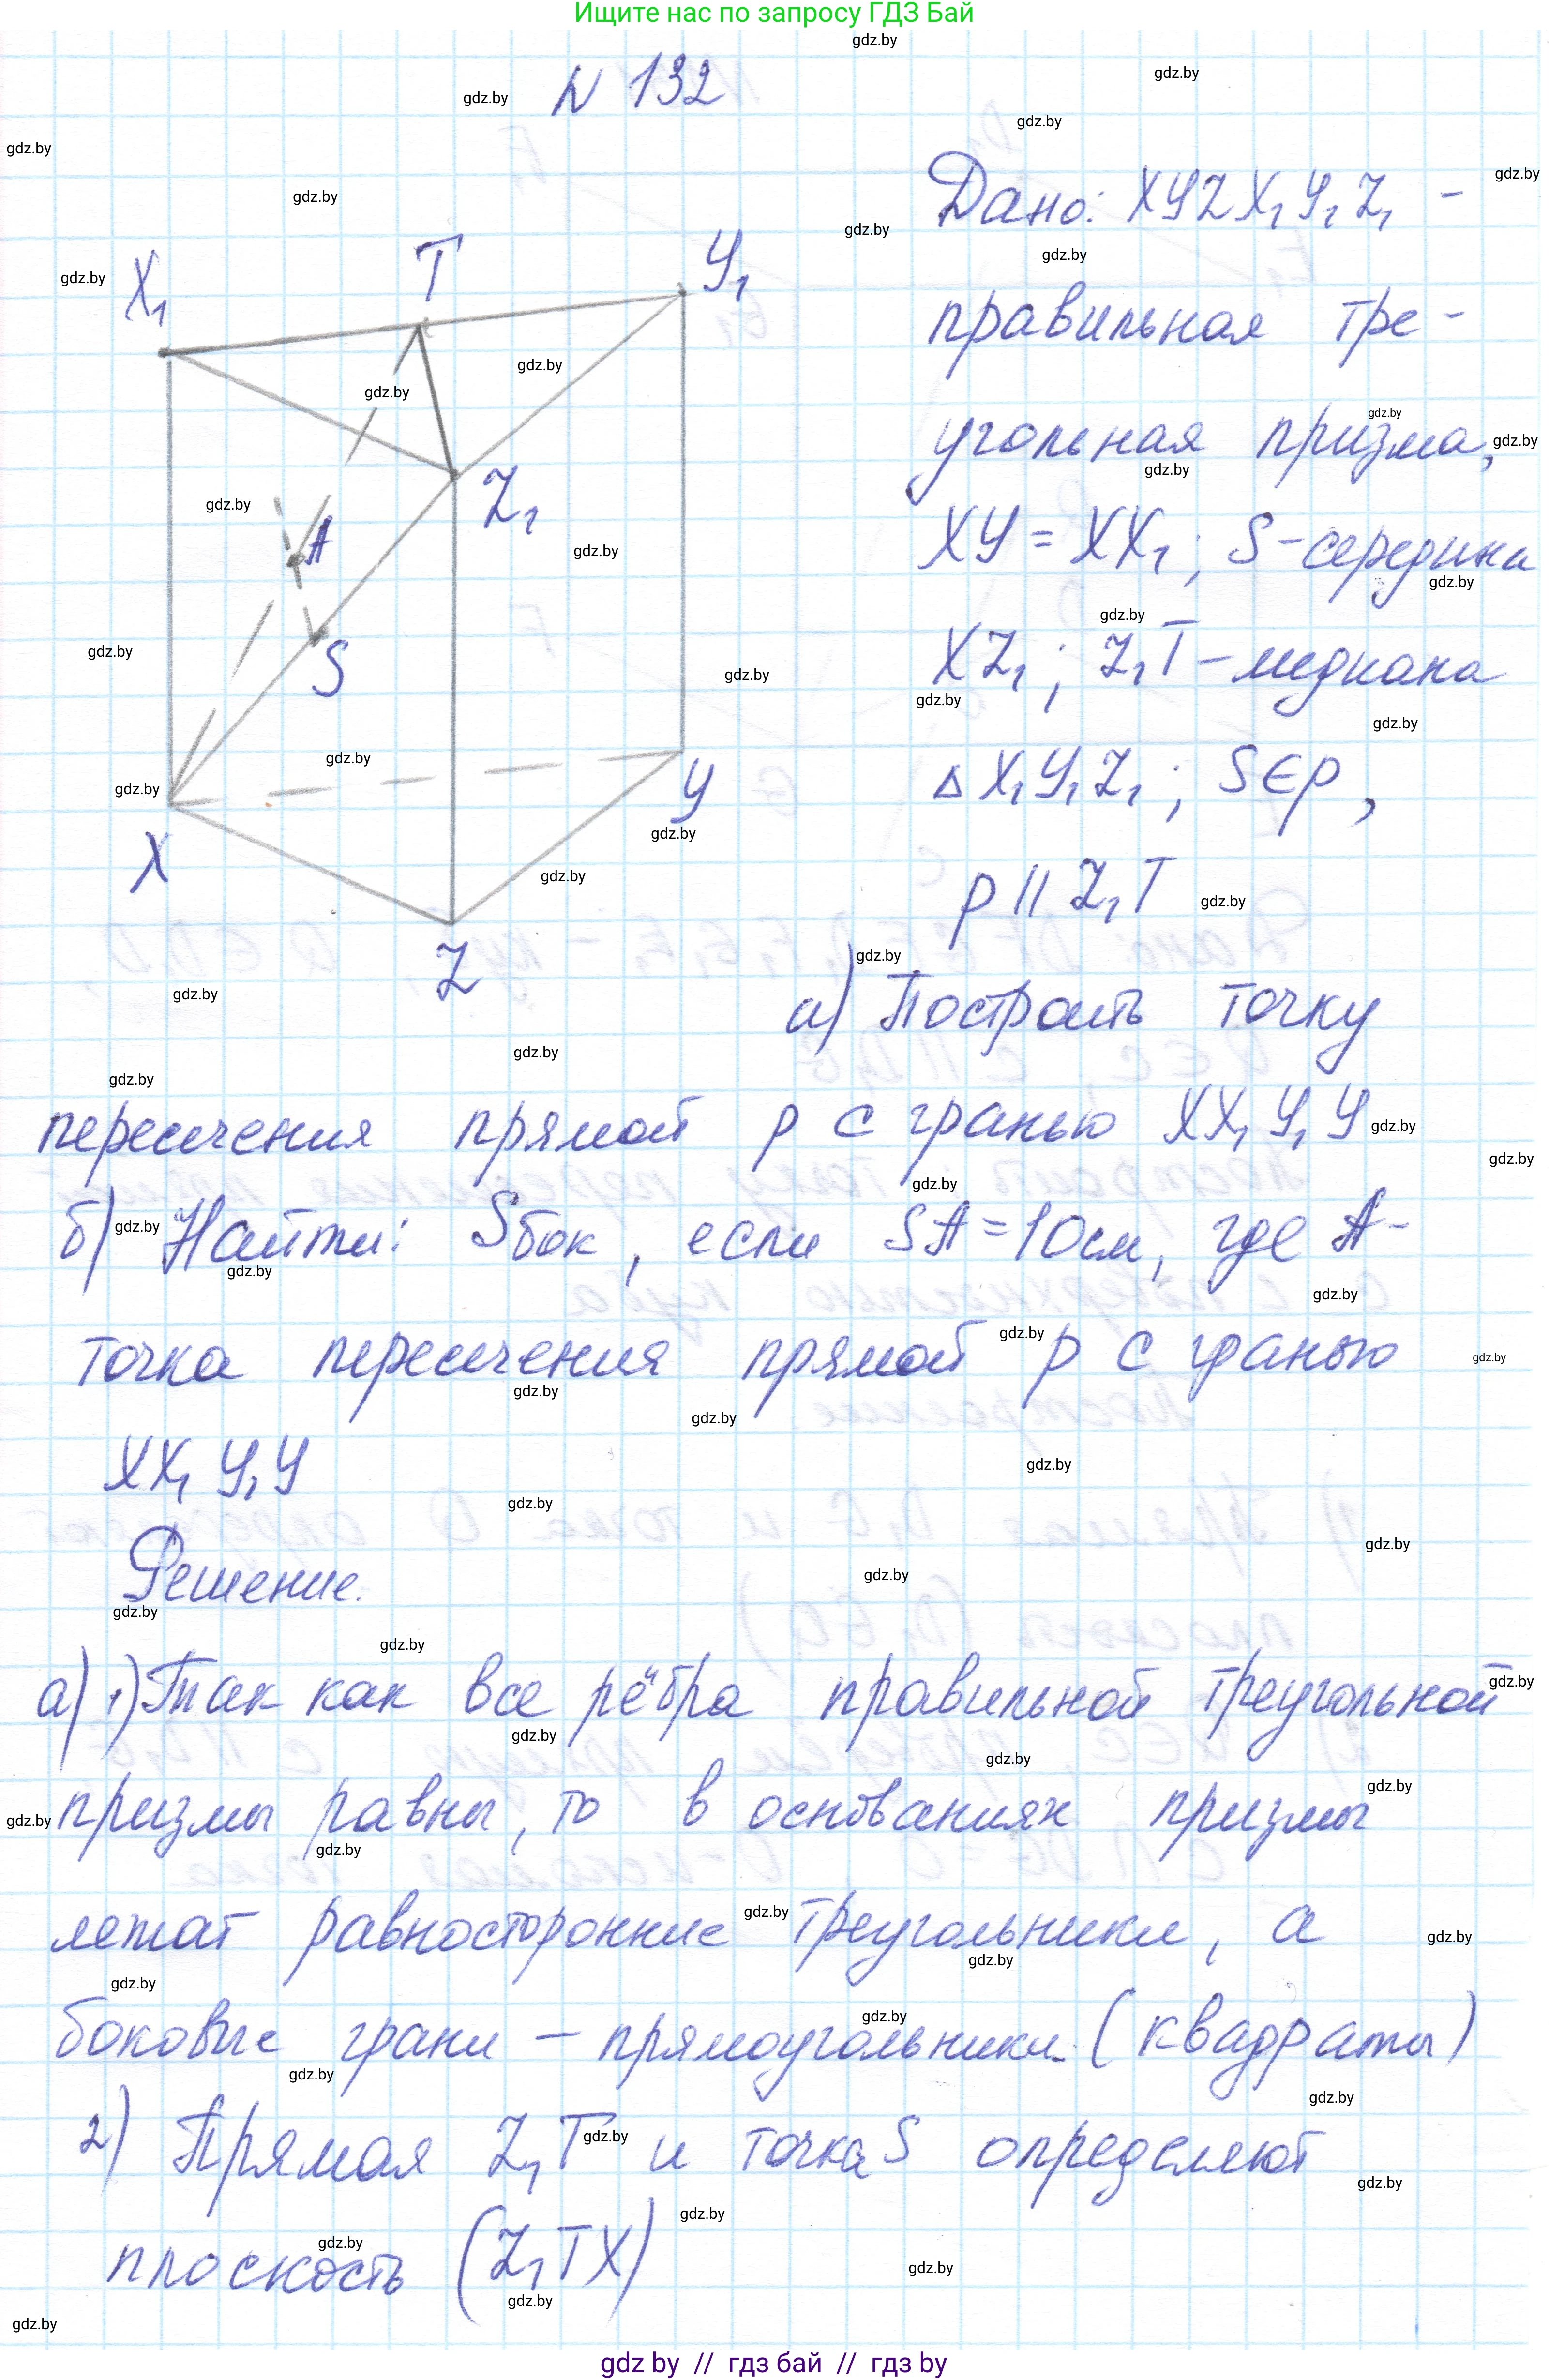 Ищите нас по запросу ГДЗ Бай
N 132
Дано: XYZX₁Y₁Z₁ -
правильная тре-
угольная призма,
XY = XX₁; S-середина
XZ₁; Z₁T-медиана
△X₁Y₁Z₁; S∈p,
p || Z₁T
X₁
T
Y₁
Z₁
A
S
X
Y
Z
а) Построить точку
пересечения прямой p с гранью XX₁Y₁Y
б) Найти: Sбок, если SA=10см, где A-
точка пересечения прямой p с гранью
XX₁Y₁Y
Решение.
а) 1) Так как все рёбра правильной треугольной
призмы равны, то в основаниях призмы
лежат равносторонние треугольники, а
боковые грани – прямоугольники (квадраты)
2) Прямая Z₁T и точка S определяют
плоскость (Z₁TX)
gdz by // гдз бай // гдз by